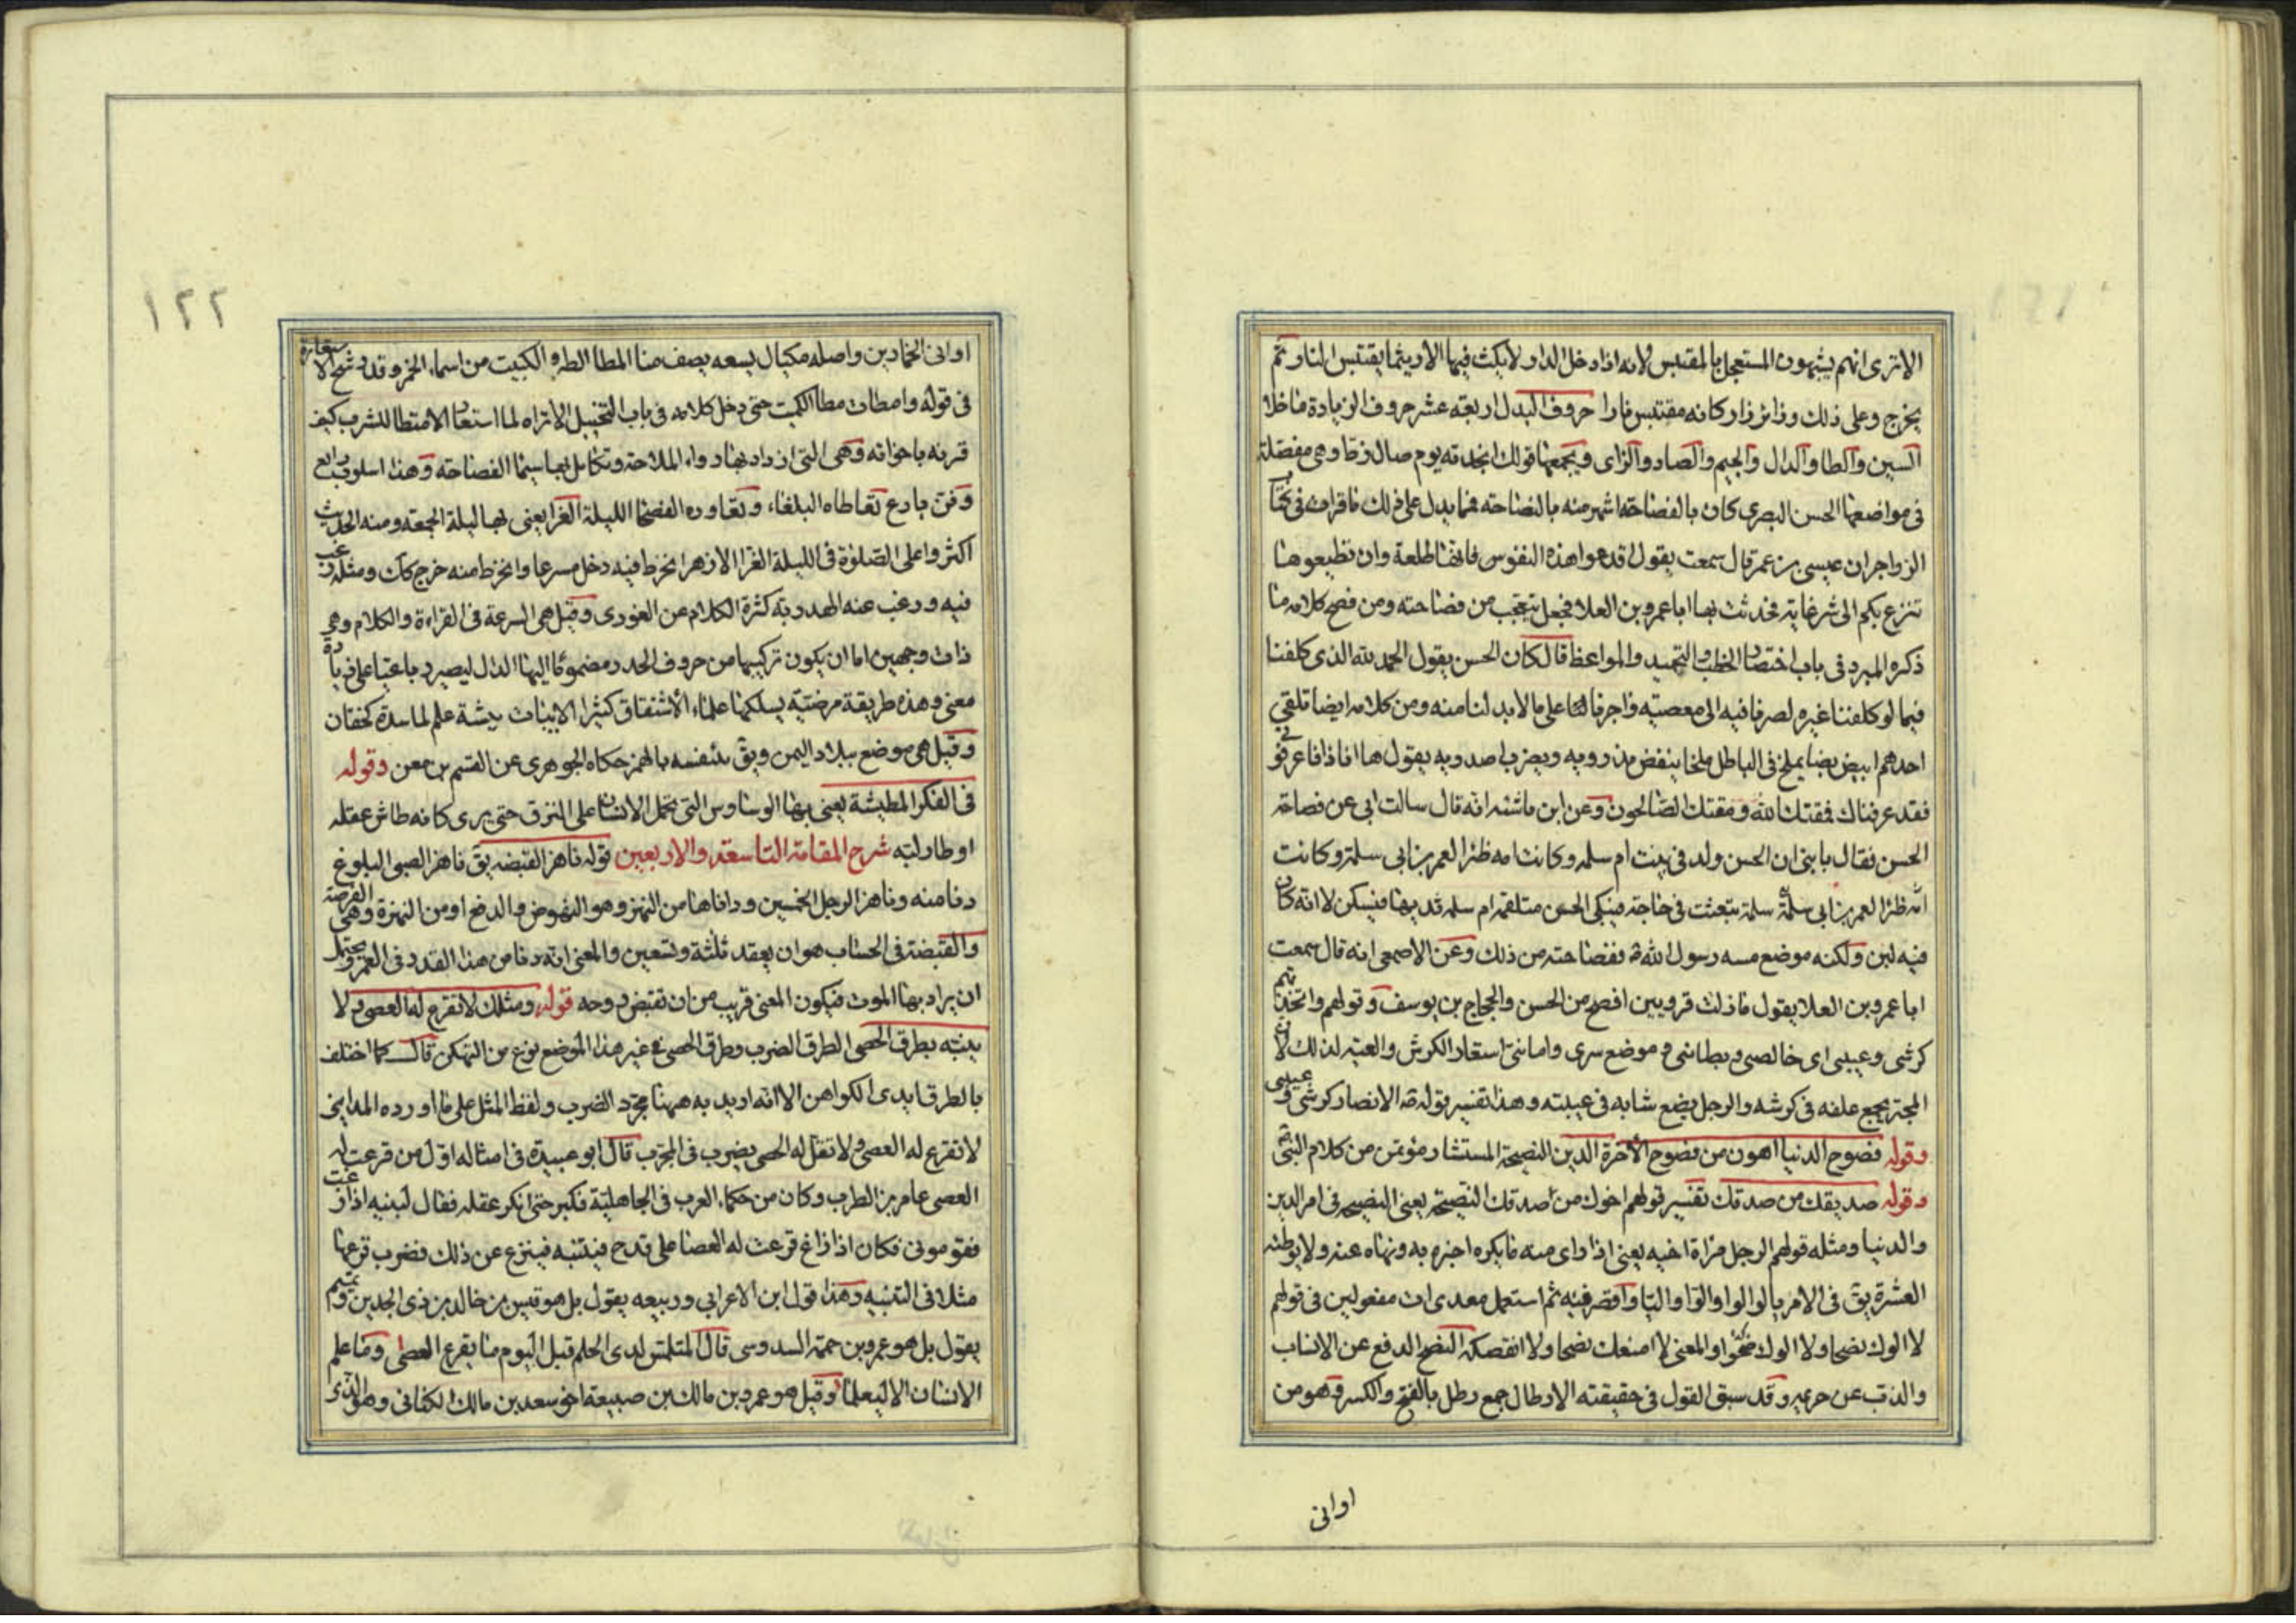 الا ترى انهم يشبهون المستعجل بالمقتبس لانه اذا دخل الدار لا يمكث فيها الا ريثما يقتبس النار ثم
يخرج وعلى ذلك وزائر زار كانه مقتبس نارا حروف البدل اربعة عشر حروف الزيادة ما خلا
السين والطا والدال والجيم والصاد والزاى ويجمعها قولك انجدته يوم صال زط وهى مفصلة
فى مواضعها الحسن البصرى كان بالفصاحة اشهر منه بالفصاحة فما يدل على ذلك ما قرات فى كتاب
الزواجر ان عيسى بن عمر قال سمعت يقول اقدعوا هذه النفوس فانها طلعة وان تطيعوها
تنزع بكم الى شر غاية فحدثت بها ابا عمرو بن العلا فجعل يتعجب من فصاحته ومن فصيح كلامه ما
ذكره المبرد فى باب اختصار الخطب والتحميد والمواعظ قال كان الحسن يقول الحمد لله الذى كلفنا
فيما لو كلفنا غيره لصرنا فيه الى معصيته واجرنا على ما لا بد لنا منه ومن كلامه ايضا تلقى
احدهم ابيض بضا يملخ فى الباطل ملخا ينفض مذرويه ويضرب اصدريه يقول ها انا ذا فاعرفونى
فقد عرفناك فمقتك الله ومقتك الصالحون وعن ابن عائشه انه قال سالت ابى عن فصاحة
الحسن فقال يا بنى ان الحسن ولد فى بيت ام سلمه وكانت امه ظئرا لعمر بن ابى سلمة وكانت
امه ظئرا لعمر بن ابى سلمة سلمة تبعثت فى حاجة فيبكى الحسن متلقمه ام سلمه ثديها فيسكن لا انه كان
فيه لبن ولكنه موضع مسه رسول الله ففصاحته من ذلك وعن الاصمعى انه قال سمعت
ابا عمرو بن العلا يقول ما رايت قرويين افصح من الحسن والحجاج بن يوسف وقولهم واتخذتهم
كرشى وعيبتى اى خالصتى وبطانتى وموضع سرى وامانتى استعار الكرش والعيبة لذلك لان
المجتر يجمع علفه فى كرشه والرجل يضع ثيابه فى عيبته وهذا تفسير قوله الانصار كرشى وعيبتى
وقوله فضوح الدنيا اهون من فضوح الآخرة الدين النصيحة المستشار مؤتمن من كلام النبى
وقوله صديقك من صدقك تفسير قولهم اخوك من صدقك النصيحة يعنى النصيحه فى امر الدين
والدنيا ومثله قولهم الرجل مراة اخيه يعنى اذا راى منه ما يكره اخبره به ونهاه عنه ولا يوطئه
العشرة يق فى الامر يالوا الوا والوا والتا وآ قصر فيه ثم استعمل معدى الى مفعولين فى قولهم
لا الوك نصحا ولا الوك والمعنى لا امنعك نصحا ولا انقصكه النضح الدفع عن الانساب
والذب عن حريم وقد سبق القول فى حقيقته الارطال جمع رطل بالفتح والكسر وهو من
اوانى
١٢٢
اوانى الخمارين واصله مكيال يسعه يصف منا المطا الظهر والكميت من اسماء الخمر وقد رشح الاستعارة
فى قوله وامطات مطا الكميت حتى دخل كلامه فى باب التخييل الا تراه لما استعار الامتطا للشرب كيف
قرنه باخواته وهى التى ازداد بها رواء الملاحة وتكامل بها سيما الفصاحة وهذا اسلوب رائع
وفن بارع تعاطاه البلغاء وتعاوره الفصحا الليلة الغرا يعنى بها ليلة الجمعة ومنه الحديث
اكثروا على الصلوة فى الليلة الغرا الازهر انخرط فيه دخل مسرعا وانخرط منه خرج كذلك ومثله رغب
فيه ورغب عنه الهذربة كثرة الكلام عن الغورى وقيل هى السرعة فى القراءة والكلام وهى
ذات وجهين اما ان يكون تركيبها من حروف الهذر مضموما اليها الدال ليصير رباعيا على زيادة
معنى وهذه طريقة مرضية يسلكها علماء الاشتقاق كثيرا الابيات بيشة علم لماسدة كخفان
وقيل هى موضع ببلاد اليمن ويق بئنفسه بالهمز حكاه الجوهرى عن القسم بن معن وقوله
فى الفكر المطيشة يعنى بها الوساوس التى تحمل الانسان على النزق حتى يرى كانه طاش عقله
او طار لبه شرح المقامة التاسعة والاربعين قوله ناهز القبضه يق ناهز الصبى البلوغ
دنا منه وناهز الرجل الخمسين ودناها من النهز وهو النهوض والدفع او من النهزة وهى الفرصة
والقبضة فى الحساب هو ان يعقد ثلثة وتسعين والمعنى انه دنا من هذا القدر فى العمر ويحتمل
ان يراد بها الموت فيكون المعنى قريب من ان تقبض روحه قوله ومثلك لا تقرع له العصى ولا
ينبه بطرق الحصى الطرق الضرب وطرق الحصى فى غير هذا الموضع نوع من التهكن قال كما اختلف
بالطرق ايدى الكواهن الا انه اريد به ههنا مجرد الضرب ولفظ المثل على ما اورده الميدانى
لا تقرع له العصى ولا تقلقل له الحصى يضرب فى المجرب قال ابو عبيدة فى امثاله اول من قرعت له
العصى عامر بن الظرب وكان من حكماء العرب فى الجاهلية فكبر حتى انكر عقله فقال لبنيه اذا زغت
فقومونى فكان اذا زاغ قرعت له العصا على قدح فينتبه فينزع عن ذلك فضرب قرعها
مثلا فى التنبيه وهذا قول ابن الاعرابى وربيعه يقول بل هو قيس بن خالد بن ذى الجدين وتميم
يقول بل هو عمرو بن حممة السدوسى قال المتلمس لذى الحلم قبل اليوم ما يقرع العصى وما علم
الانسان الا ليعلما وقيل هو عمرو بن مالك بن ضبيعة اخو سعد بن مالك الكنانى وهو الذى